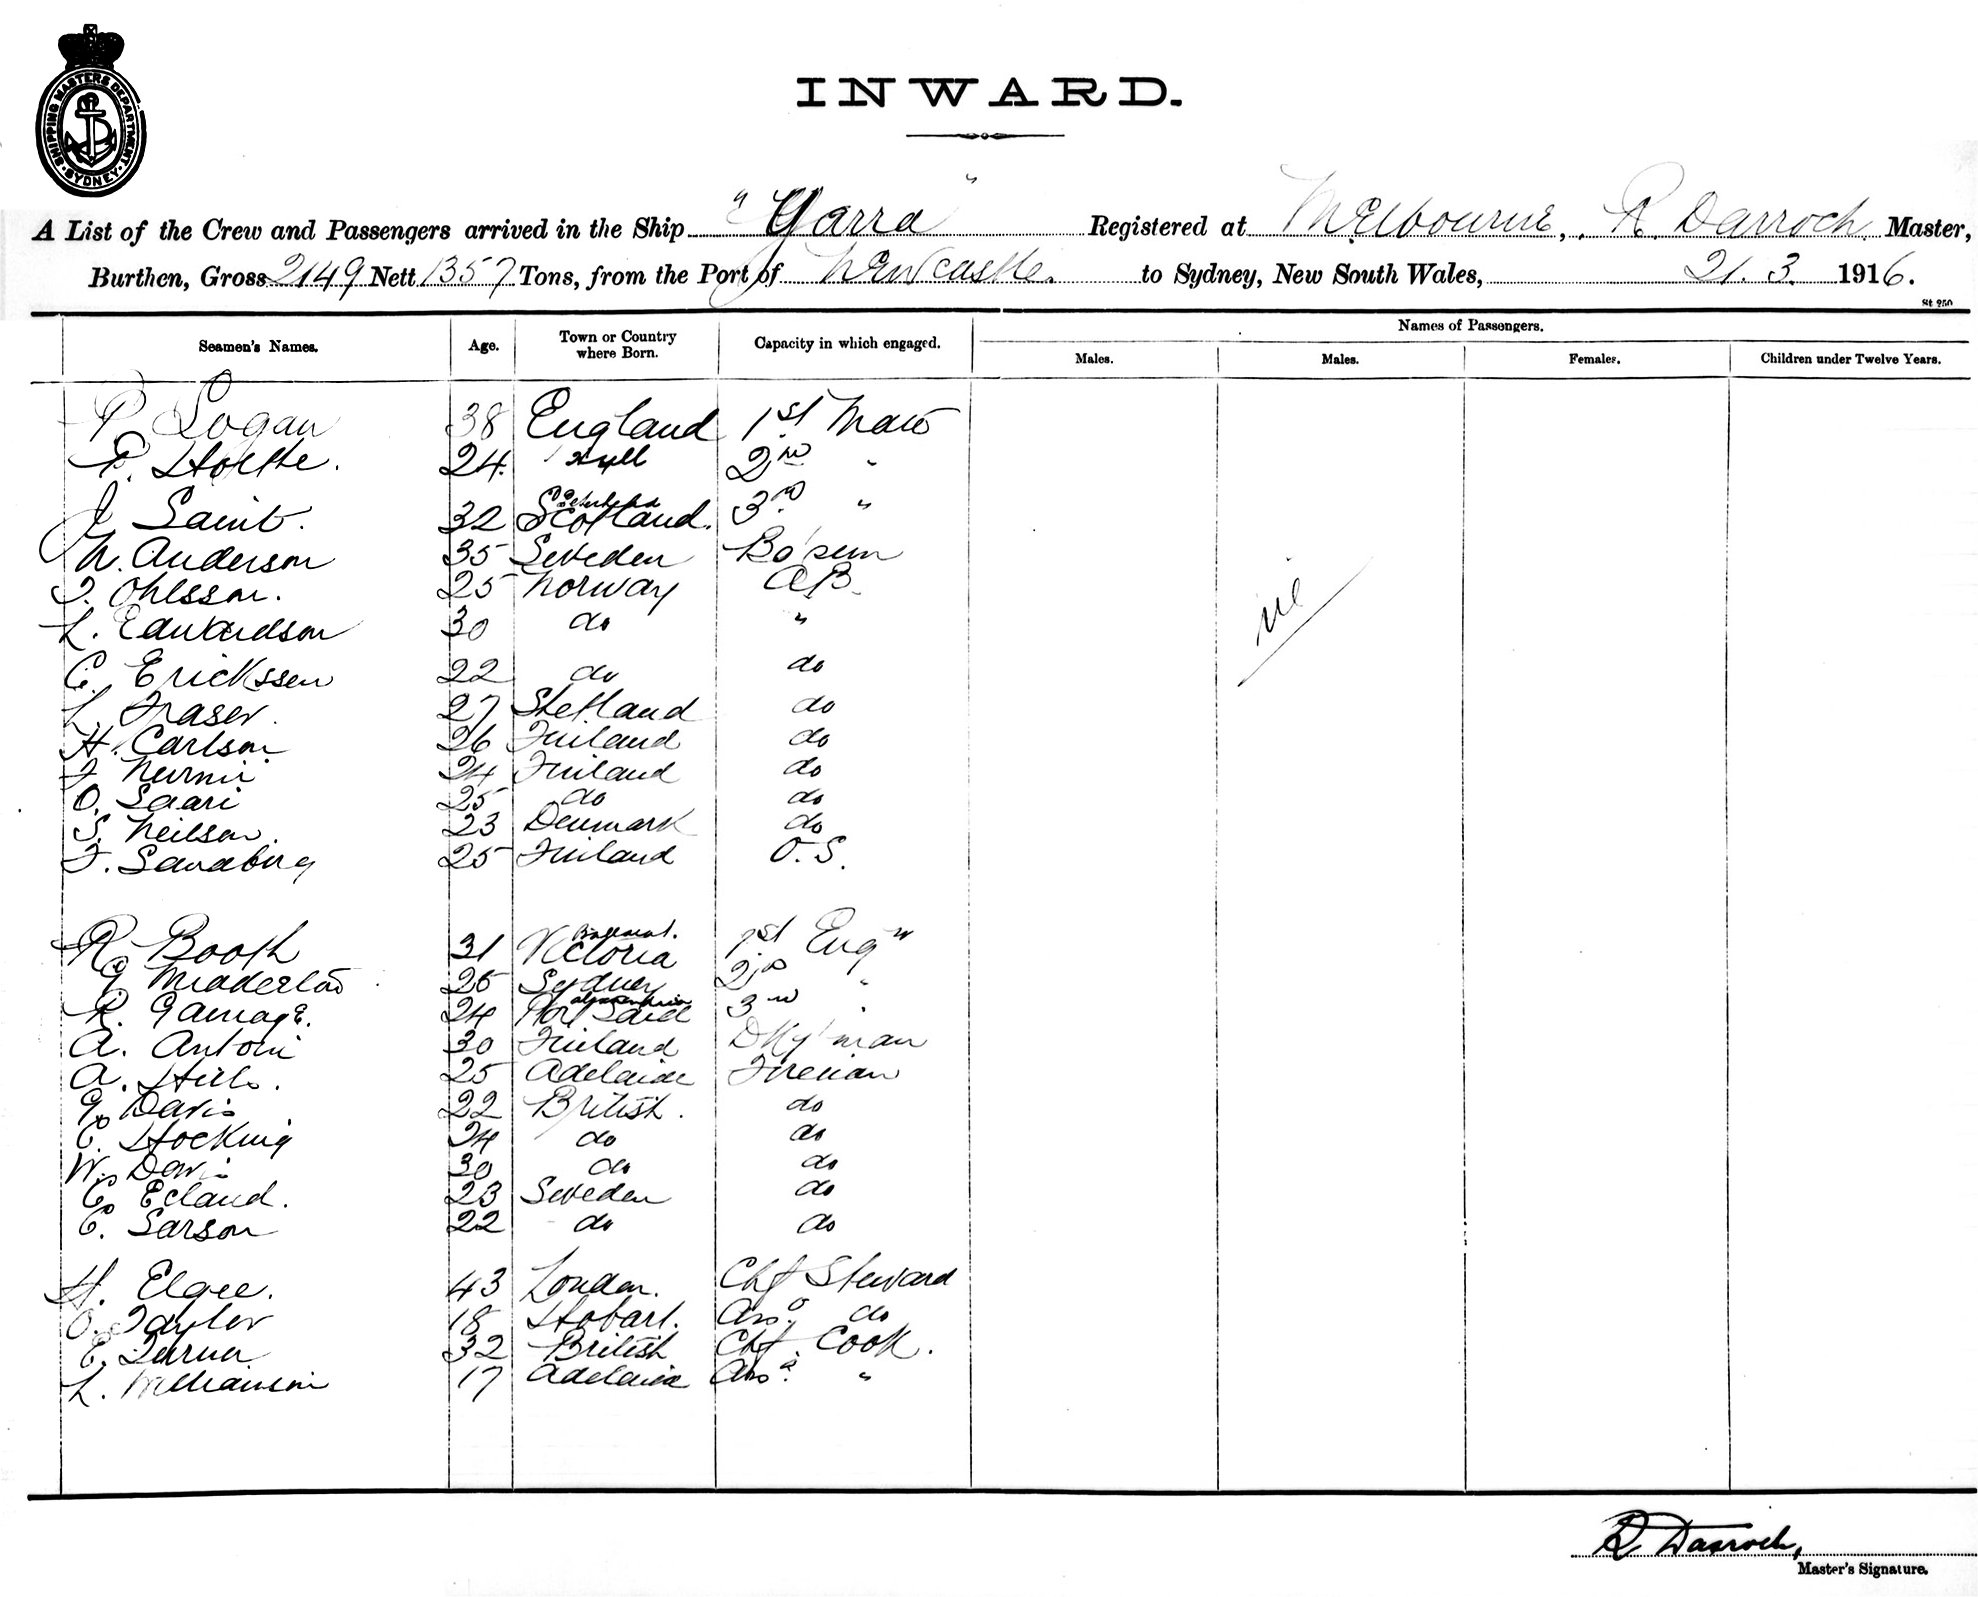 SHIPPING MASTERS DEPARTMENT
SYDNEY
INWARD.
A List of the Crew and Passengers arrived in the Ship "Yarra" Registered at Melbourne, R. Darroch Master,
Burthen, Gross 2149 Nett 1357 Tons, from the Port of Newcastle. to Sydney, New South Wales, 21.3.1916.
St 250
Names of Passengers.
Seamen's Names. Age. Town or Country where Born. Capacity in which engaged. Males. Males. Females. Children under Twelve Years.
P Logan 38 England 1st Mate
24 Hull 2nd "
J Saint. 32 Peterhead Scotland. 3rd "
N. Anderson 35 Sweden Bo'sun
Ohlsson. 25 Norway AB
L. Edwardson 30 do "
C. Erickssen 22 do do
L. Fraser. 27 Shetland do
H. Carlson. 26 Finland do
Nurmi 24 Finland do
O. Saari 25 do do
S. Neilson. 23 Denmark do
F. Sandberg 25 Finland O.S.
nil
R Booth 31 Victoria 1st Engr
26 Sydney 2nd "
R. Gamage. 24 Alexandria Port Said 3rd "
A. Antoni 30 Finland Dky man
A. Hills. 25 Adelaide Fireman
G. Davis 22 British. do
C. Hocking 24 do do
W. Davis 30 do do
C. Ecland. 23 Sweden do
C. Sarson 22 do do
H. Elgee. 43 London. Chf Steward
O. Taylor 18 Hobart. Asst do
E. Turner 32 British Chf. Cook.
L. Williamson 17 Adelaide Asst "
R Darroch,
Master's Signature.